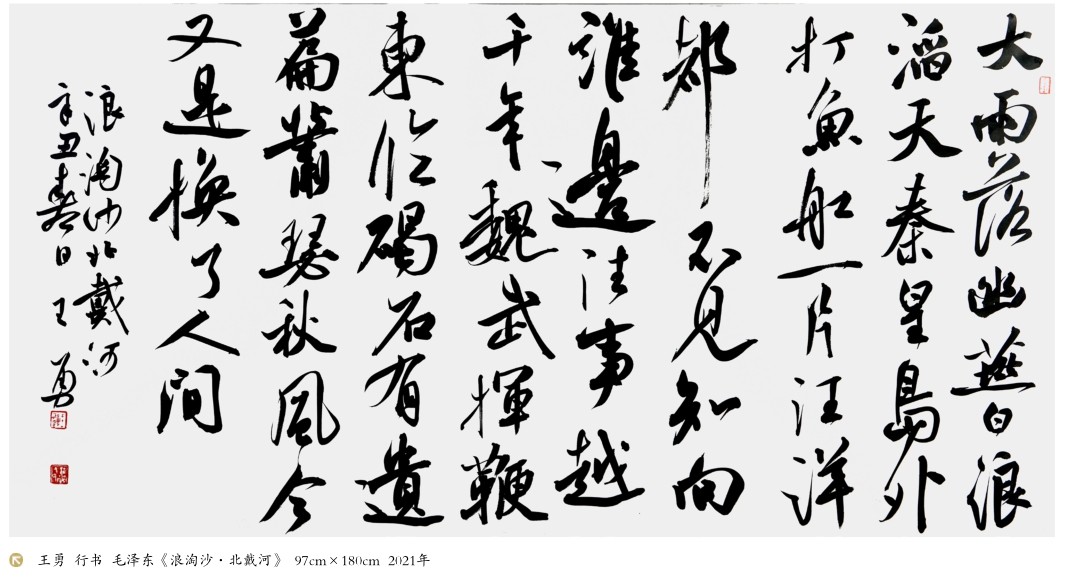 大雨落幽燕白浪
滔天秦皇島外
打魚船一片汪洋
都不見知向
誰邊往事越
千年魏武揮鞭
東临碣石有遺
篇蕭瑟秋風今
又是換了人間
浪淘沙北戴河
辛丑春日王勇
王勇 行书 毛泽东《浪淘沙·北戴河》 97cm×180cm 2021年